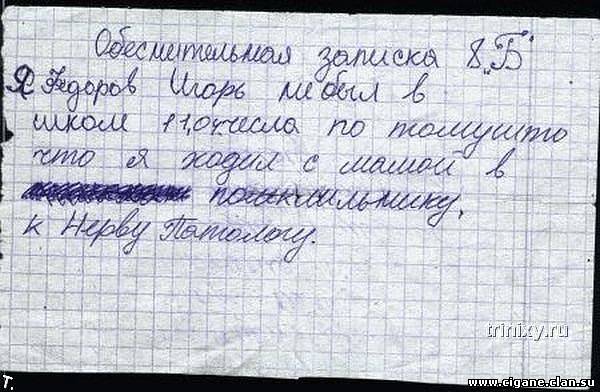 Обеснительная записка 8 „Б"
Я Федоров Игорь небыл в
школ 11,04 числа по томушто
что я ходил с мамой в
к Нерву Патологу.
trinixy.ru
www.cigane.clan.su
т.